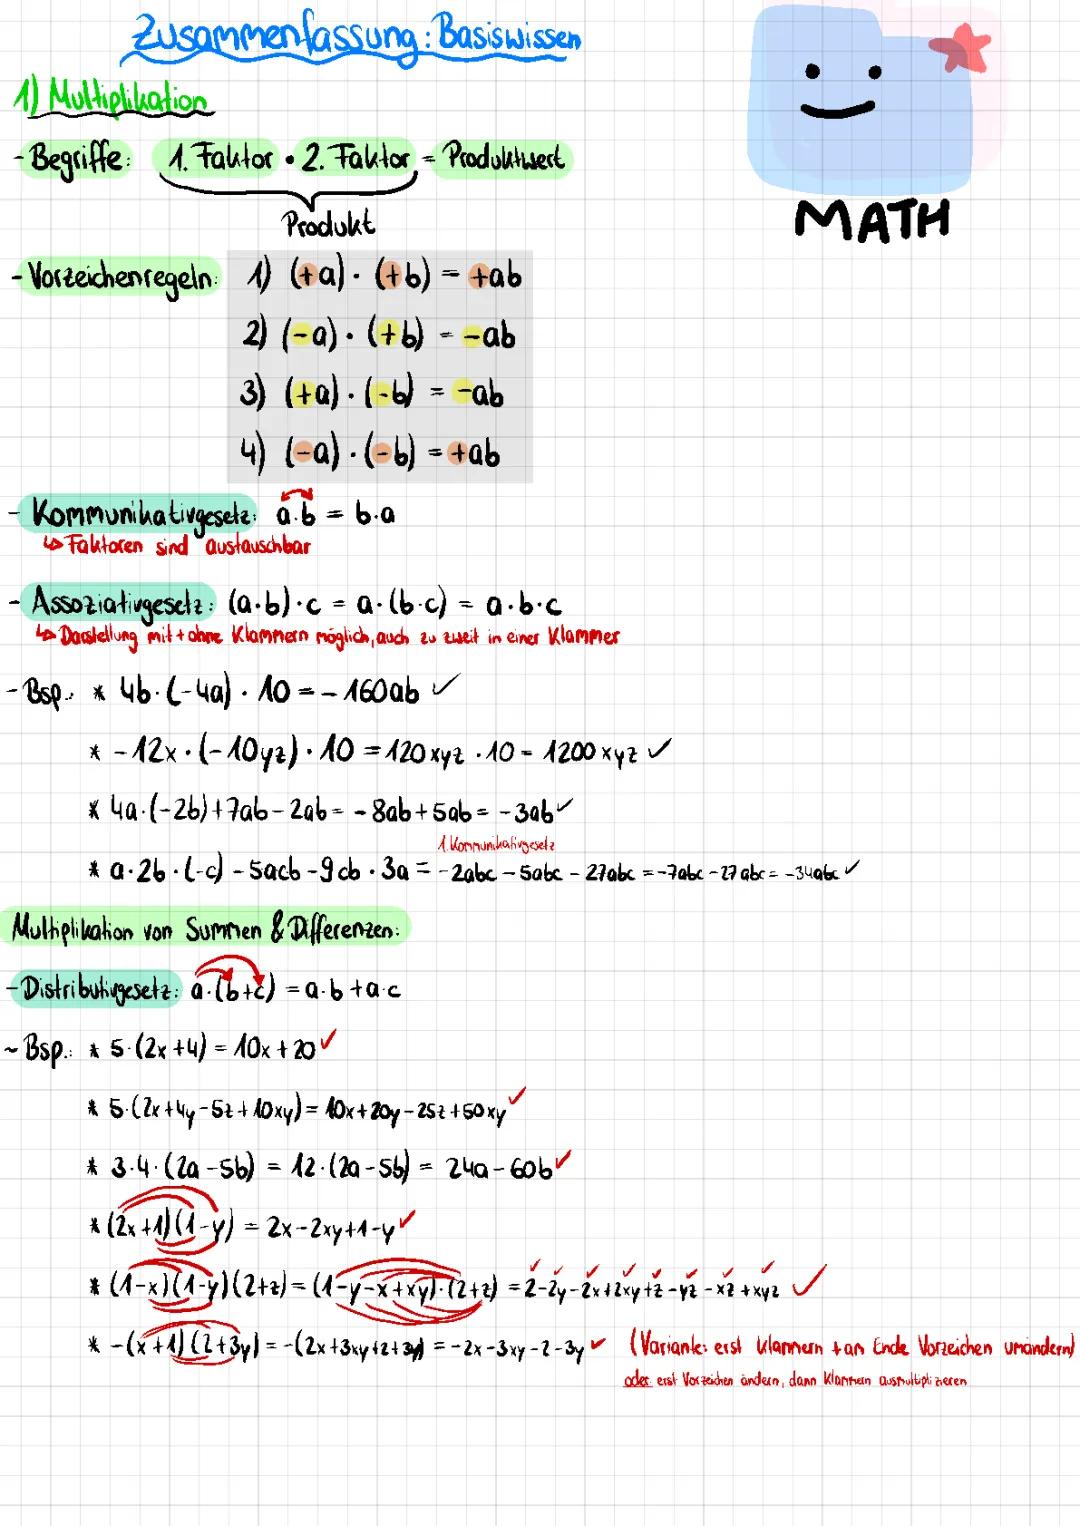 Zusammenfassung: Basiswissen
MATH
1) Multiplikation
- Begriffe: 1. Faktor • 2. Faktor = Produktwert
Produkt
- Vorzeichenregeln: 1) (+a) · (+b) = +ab
2) (-a) · (+b) = -ab
3) (+a) · (-b) = -ab
4) (-a) · (-b) = +ab
- Kommunikativgesetz: a·b = b·a
↳ Faktoren sind austauschbar
- Assoziativgesetz: (a·b)·c = a·(b·c) = a·b·c
↳ Darstellung mit + ohne Klammern möglich, auch zu zweit in einer Klammer
- Bsp.: * 4b·(-4a) · 10 = -160ab ✓
* -12x · (-10yz) · 10 = 120xyz · 10 = 1200xyz ✓
* 4a·(-2b)+7ab-2ab = -8ab+5ab = -3ab ✓
1. Kommunikativgesetz
* a·2b·(-c) - 5acb - 9cb · 3a = -2abc - 5abc - 27abc = -7abc - 27abc = -34abc ✓
Multiplikation von Summen & Differenzen:
- Distributivgesetz: a·(b+c) = a·b + a·c
~ Bsp.: * 5·(2x+4) = 10x + 20 ✓
* 5·(2x+4y-5z+10xy) = 10x+20y-25z+50xy ✓
* 3·4·(2a-5b) = 12·(2a-5b) = 24a-60b ✓
* (2x+1)(1-y) = 2x-2xy+1-y ✓
* (1-x)(1-y)(2+z) = (1-y-x+xy)·(2+z) = 2-2y-2x+2xy+z-yz-xz+xyz ✓
* -(x+1)(2+3y) = -(2x+3xy+2+3y) = -2x-3xy-2-3y ✓ (Variante: erst Klammern + am Ende Vorzeichen umändern)
oder: erst Vorzeichen ändern, dann Klammern ausmultiplizieren